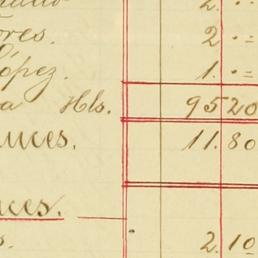 2. "=
ores. 2 "=
ópez. 1. "=
a Hls. 95 20
uces. 11.80
uces.
s. 2.10